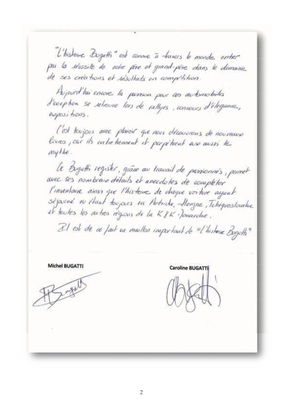 "L'histoire Bugatti" est connue à travers le monde entier
par la réussite de notre père et grand-père dans le domaine
de ses créations et résultats en compétition.
Aujourd'hui encore la passion pour ces automobiles
d'exception se retrouve lors de rallyes, concours d'élégance,
expositions.
C'est toujours avec plaisir que nous découvrons de nouveaux
livres, car ils entretiennent et perpétuent aux mieux le
mythe.
Le Bugatti register, grâce au travail de passionnés, permet
avec ses nombreux détails et anecdotes de compléter
l'inventaire ainsi que l'histoire de chaque voiture ayant
séjourné ou étant toujours en Autriche, Hongrie, Tchécoslovaquie
et toutes les autres régions de la K/K Monarchie.
Il est de ce fait un maillon important de "L'histoire Bugatti"
Michel BUGATTI Caroline BUGATTI
2